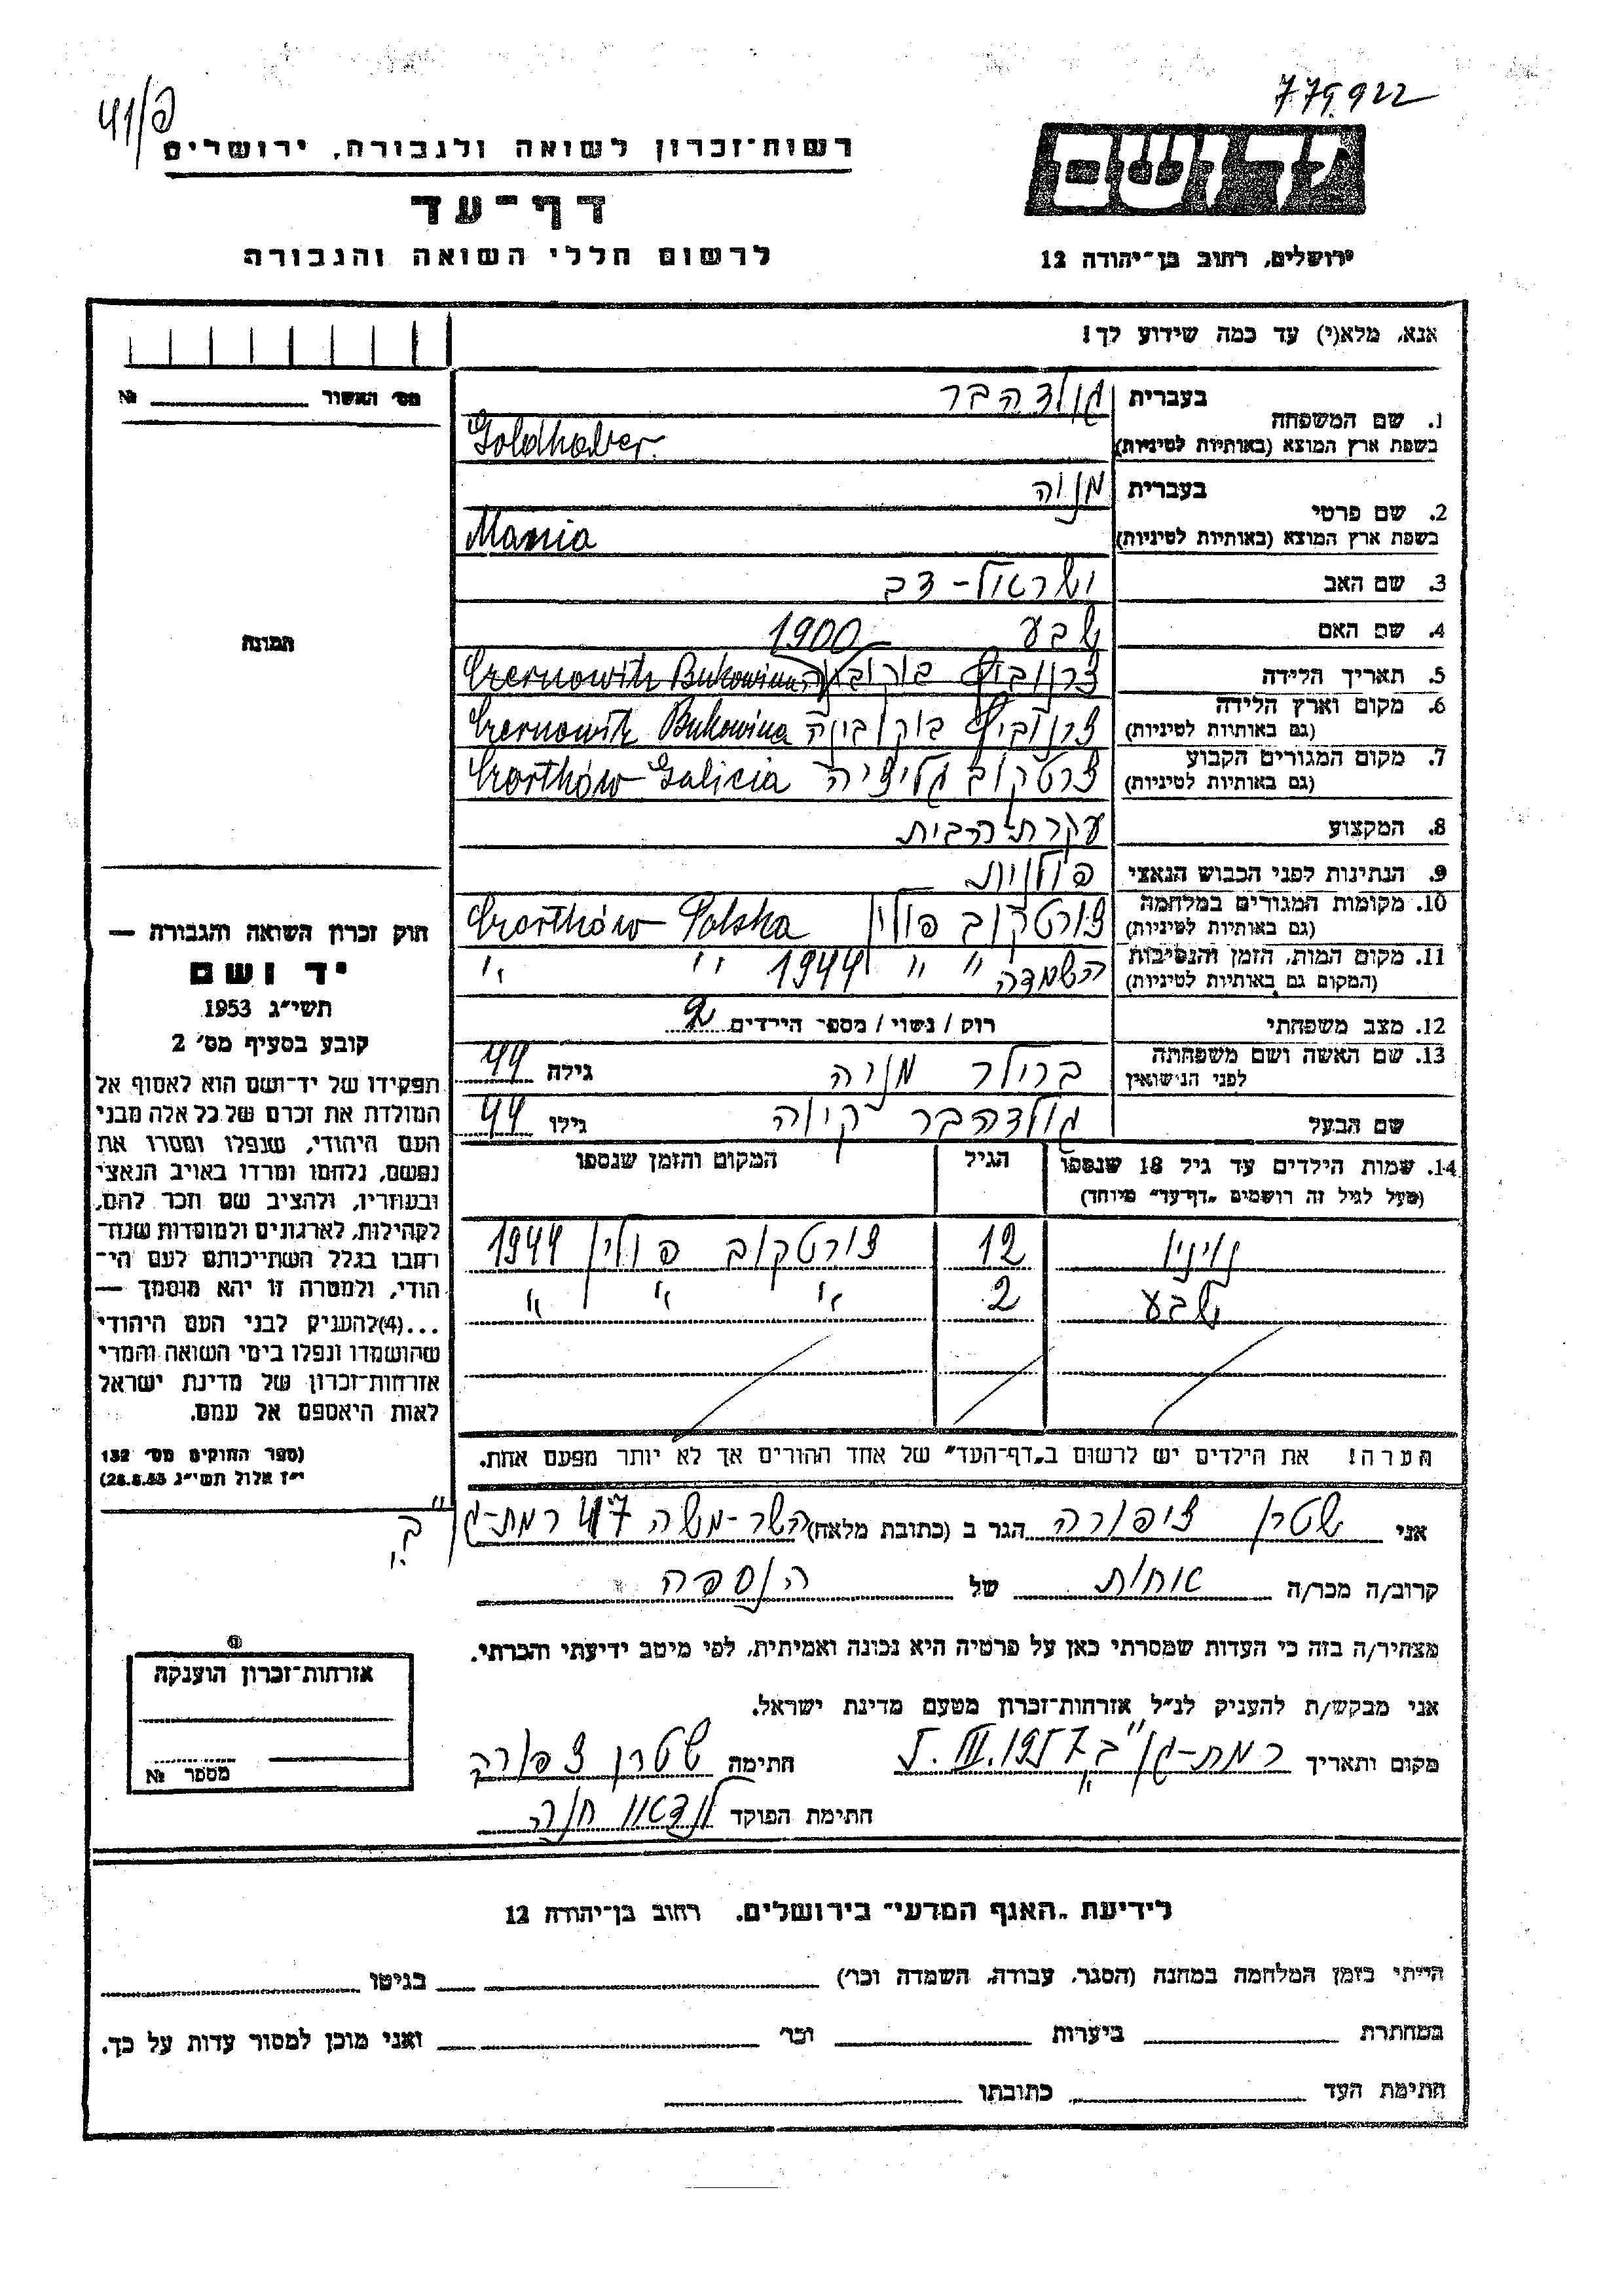 779922
41/פ
רשות־זכרון לשואה ולגבורה, ירושלים
דף־עד
לרשום חללי השואה והגבורה
ידושם
ירושלים, רחוב בן־יהודה 12
אנא, מלא(י) עד כמה שידוע לך!
מס׳ האשור № 
1. שם המשפחה בעברית גולדהבר
בשפת ארץ המוצא (באותיות לטיניות) Goldhaber
2. שם פרטי בעברית מניה
בשפת ארץ המוצא (באותיות לטיניות) Mania
3. שם האב ישראל-דב
4. שם האם שבע
תמונה
5. תאריך הלידה 1900 צרנוביץ בוקובינה Czernowitz Bukowina
6. מקום וארץ הלידה
(גם באותיות לטיניות) צרנוביץ בוקובינה Czernowitz Bukowina
7. מקום המגורים הקבוע
(גם באותיות לטיניות) צרטקוב גליציה Czortków Galicia
8. המקצוע עקרת-הבית
9. הנתינות לפני הכבוש הנאצי פולנית
10. מקומות המגורים במלחמה
(גם באותיות לטיניות) צורטקוב פולין Czortków Polska
11. מקום המות, הזמן והנסיבות
(המקום גם באותיות לטיניות) השמדה " " 1944 " "
12. מצב משפחתי רווק / נשוי / מספר הילדים 2
13. שם האשה ושם משפחתה
לפני הנישואין מניה גילה 44
שם הבעל גולדהבר קיווה גילו 44
14. שמות הילדים עד גיל 18 שנספו הגיל המקום והזמן שנספו
(מעל לגיל זה רושמים „דף־עד" מיוחד)
12 צורטקוב פולין 1944
שבע 2 " " " "
הערה! את הילדים יש לרשום ב„דף־העד" של אחד ההורים אך לא יותר מפעם אחת.
חוק זכרון השואה והגבורה —
יד ושם
תשי״ג 1953
קובע בסעיף מס׳ 2
תפקידו של יד־ושם הוא לאסוף אל
המולדת את זכרם של כל אלה מבני
העם היהודי, שנפלו ומסרו את
נפשם, נלחמו ומרדו באויב הנאצי
ובעוזריו, ולהציב שם וזכר להם,
לקהילות, לארגונים ולמוסדות שנח־
רבו בגלל השתייכותם לעם הי־
הודי, ולמטרה זו יהא מוסמך —
...(4)להעניק לבני העם היהודי
שהושמדו ונפלו בימי השואה והמרי
אזרחות־זכרון של מדינת ישראל
לאות היאספם אל עמם.
(ספר החוקים מס׳ 132
י״ז אלול תשי״ג 28.8.53)
אני שטרן ציפורה הגר ב (כתובת מלאה) השר-משה 47 רמת-גן ב׳
קרוב/ה מכר/ה אחות של הנספה
מצהיר/ה בזה כי העדות שמסרתי כאן על פרטיה היא נכונה ואמיתית, לפי מיטב ידיעתי והכרתי.
אני מבקש/ת להעניק לנ״ל אזרחות־זכרון מטעם מדינת ישראל.
מקום ותאריך רמת-גן ב׳ 5.III.1957 חתימה שטרן צפורה
חתימת הפוקד לנדאו חנה
אזרחות־זכרון הוענקה
מספר №
לידיעת „האגף המדעי" בירושלים, רחוב בן־יהודה 12
הייתי בזמן המלחמה במחנה (הסגר, עבודה, השמדה וכו׳) בגיטו
במחתרת ביערות וכו׳ ואני מוכן למסור עדות על כך.
חתימת העד כתובתו